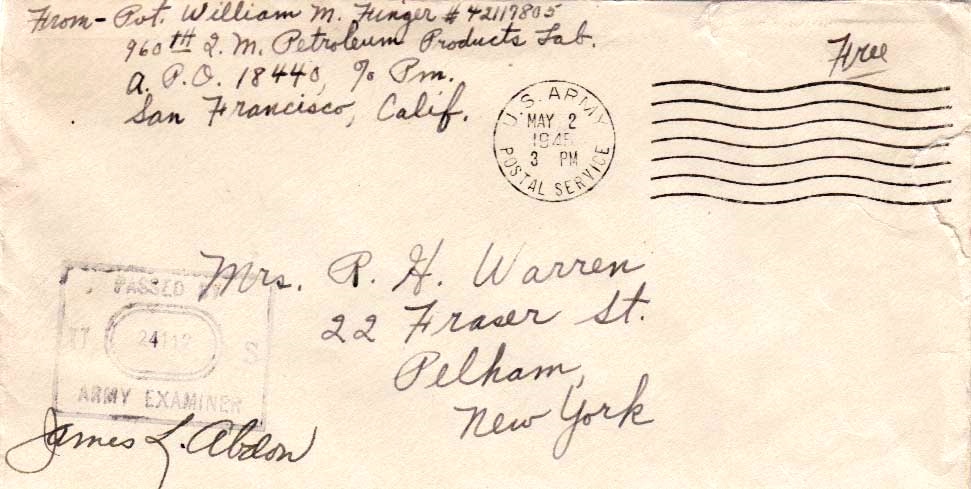 From- Pvt. William M. Finger # 42119805
960th Q. M. Petroleum Products Lab.
A. P. O. 18440, % Pm.
San Francisco, Calif.
Free
U.S. ARMY
MAY 2
1945
3 PM
POSTAL SERVICE
Mrs. R. H. Warren
22 Fraser St.
Pelham,
New York
PASSED BY
S
ARMY EXAMINER
James L. Abdon